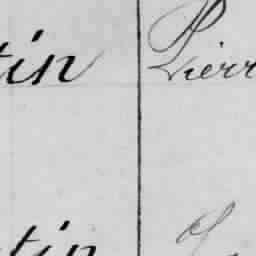 tin Pierr
tin